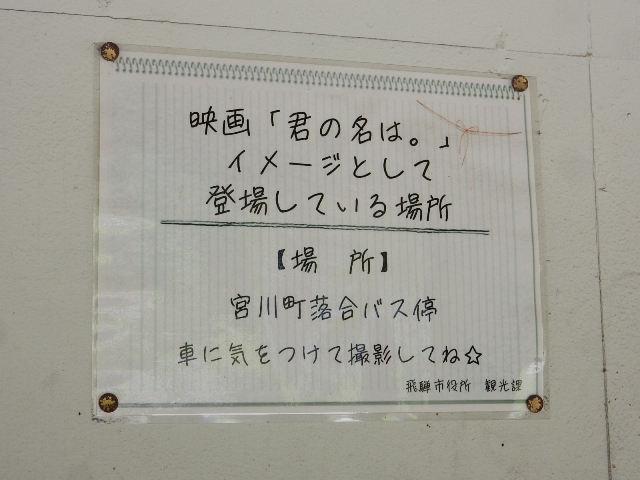 映画「君の名は。」
イメージとして
登場している場所
【場　所】
宮川町落合バス停
車に気をつけて撮影してね☆
飛騨市役所　観光課